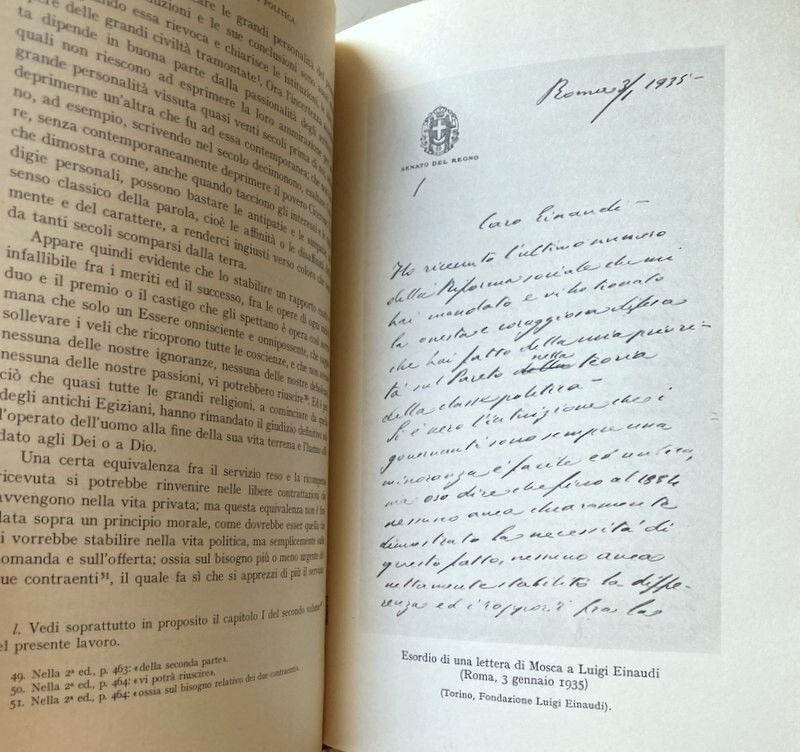 POLITICA.
le grandi personalità del
essa rievoca e chiarisce le istituzioni,
delle grandi civiltà tramontate¹. Ora l'incertezza
ta dipende in buona parte dalla passionalità degli
quali non riescono ad esprimere la loro ammirazione per
grande personalità vissuta quasi venti secoli prima di
deprimerne un'altra che fu ad essa contemporanea; che
no, ad esempio, scrivendo nel secolo decimonono,
re, senza contemporaneamente deprimere il povero Cicerone
che dimostra come, anche quando tacciono gli interessi
digie personali, possono bastare le antipatie e le simpatie
senso classico della parola, cioè le affinità o le disaffinità
mente e del carattere, a renderci ingiusti verso coloro che
da tanti secoli scomparsi dalla terra.
Appare quindi evidente che lo stabilire un rapporto
infallibile fra i meriti ed il successo, fra le opere di ogni
duo e il premio o il castigo che gli spettano è opera
mana che solo un Essere onnisciente e onnipossente, che
sollevare i veli che ricoprono tutte le coscienze, e che non
nessuna delle nostre ignoranze, nessuna delle nostre
nessuna delle nostre passioni, vi potrebbero riuscire⁵⁰. Ed è
ciò che quasi tutte le grandi religioni, a cominciare da quella
degli antichi Egiziani, hanno rimandato il giudizio definitivo
l'operato dell'uomo alla fine della sua vita terrena e l'hanno
dato agli Dei o a Dio.
Una certa equivalenza fra il servizio reso e la ricompensa
ricevuta si potrebbe rinvenire nelle libere contrattazioni che
avvengono nella vita privata; ma questa equivalenza non è
data sopra un principio morale, come dovrebbe esser quella che
si vorrebbe stabilire nella vita politica, ma semplicemente
domanda e sull'offerta; ossia sul bisogno più o meno urgente dei
due contraenti⁵¹, il quale fa sì che si apprezzi di più il servizio
l. Vedi soprattutto in proposito il capitolo I del secondo volume
del presente lavoro.
49. Nella 2ª ed., p. 463: «della seconda parte».
50. Nella 2ª ed., p. 464: «vi potrà riuscire».
51. Nella 2ª ed., p. 464: «ossia sul bisogno relativo dei due contraenti».
Roma 3/1 1935 –
SENATO DEL REGNO
Caro Einaudi –
Ho ricevuto l'ultimo numero
della Riforma sociale che mi
hai mandato e vi ho trovato
la onesta e coraggiosa difesa
che hai fatto della mia priori-
tà sul Pareto nella teoria
della classe politica –
Si è vero l'intuizione che i
governanti sono sempre una
minoranza è facile ed antica,
ma oso dire che fino al 1884
nessuno avea chiaramente
dimostrato la necessità di
questo fatto, nessuno avea
nettamente stabilito la diffe-
renza ed i rapporti fra la
Esordio di una lettera di Mosca a Luigi Einaudi
(Roma, 3 gennaio 1935)
(Torino, Fondazione Luigi Einaudi).